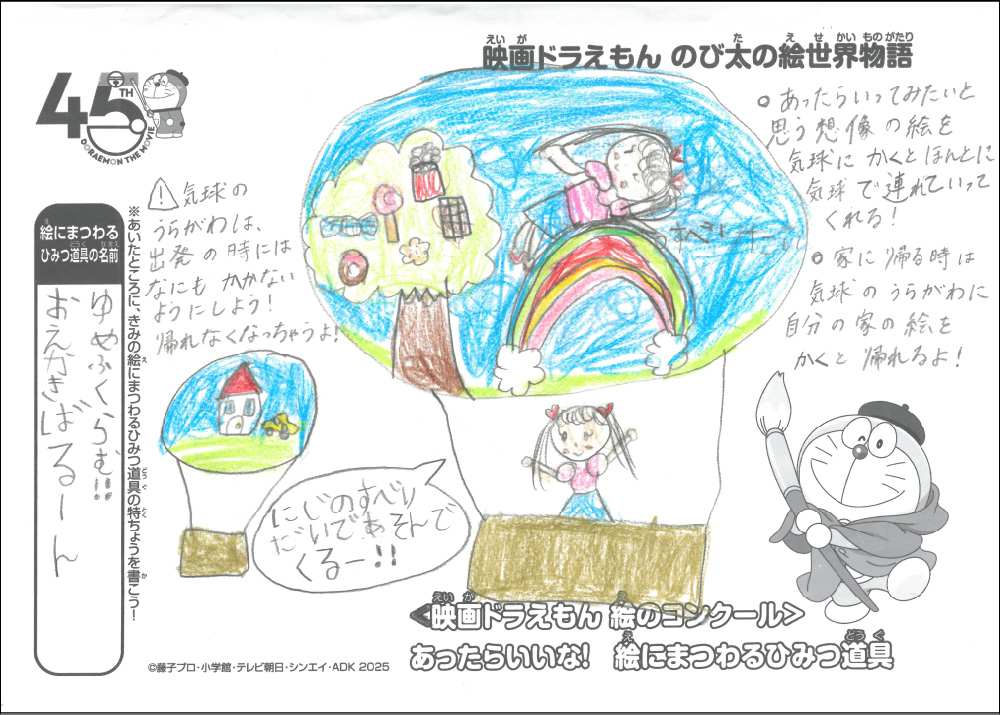 映画ドラえもん のび太の絵世界物語
えいが
た
え
せ
かい
ものがたり
45TH
DORAEMON THE MOVIE
絵にまつわる
ひみつ道具の名前
え
どうぐ
なまえ
ゆめふくらむ!!
おえかきばるーん
※あいたところに、きみの絵にまつわるひみつ道具の特ちょうを書こう!
え
どうぐ
とく
か
! 気球の
うらがわは、
出発の時には
なにもかかない
ようにしよう!
帰れなくなっちゃうよ!
すべり
にじのすべり
だいであそんで
くるー!!
○あったらいってみたいと
思う想像の絵を
気球にかくとほんとに
気球で連れていって
くれる!
○家に帰る時は
気球のうらがわに
自分の家の絵を
かくと帰れるよ!
<映画ドラえもん 絵のコンクール>
えいが
え
あったらいいな! 絵にまつわるひみつ道具
え
どうぐ
©藤子プロ・小学館・テレビ朝日・シンエイ・ADK 2025